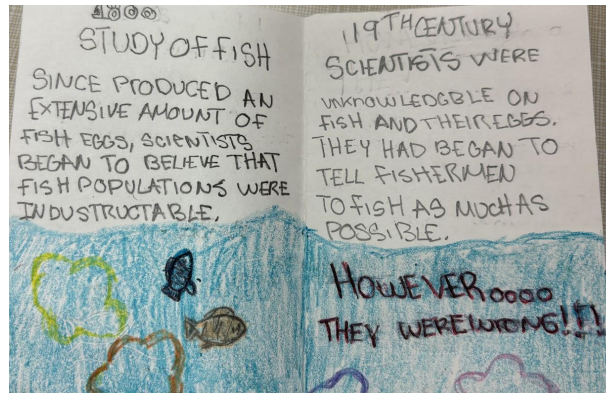 1800
STUDY OF FISH
SINCE PRODUCED AN
EXTENSIVE AMOUNT OF
FISH EGGS, SCIENTISTS
BEGAN TO BELIEVE THAT
FISH POPULATIONS WERE
INDUSTRUCTABLE.
19TH CENTURY
SCIENTISTS WERE
UNKNOWLEDGBLE ON
FISH AND THEIR EGGS.
THEY HAD BEGAN TO
TELL FISHERMEN
TO FISH AS MUCH AS
POSSIBLE.
HOWEVER oooo
THEY WERE WRONG!!!